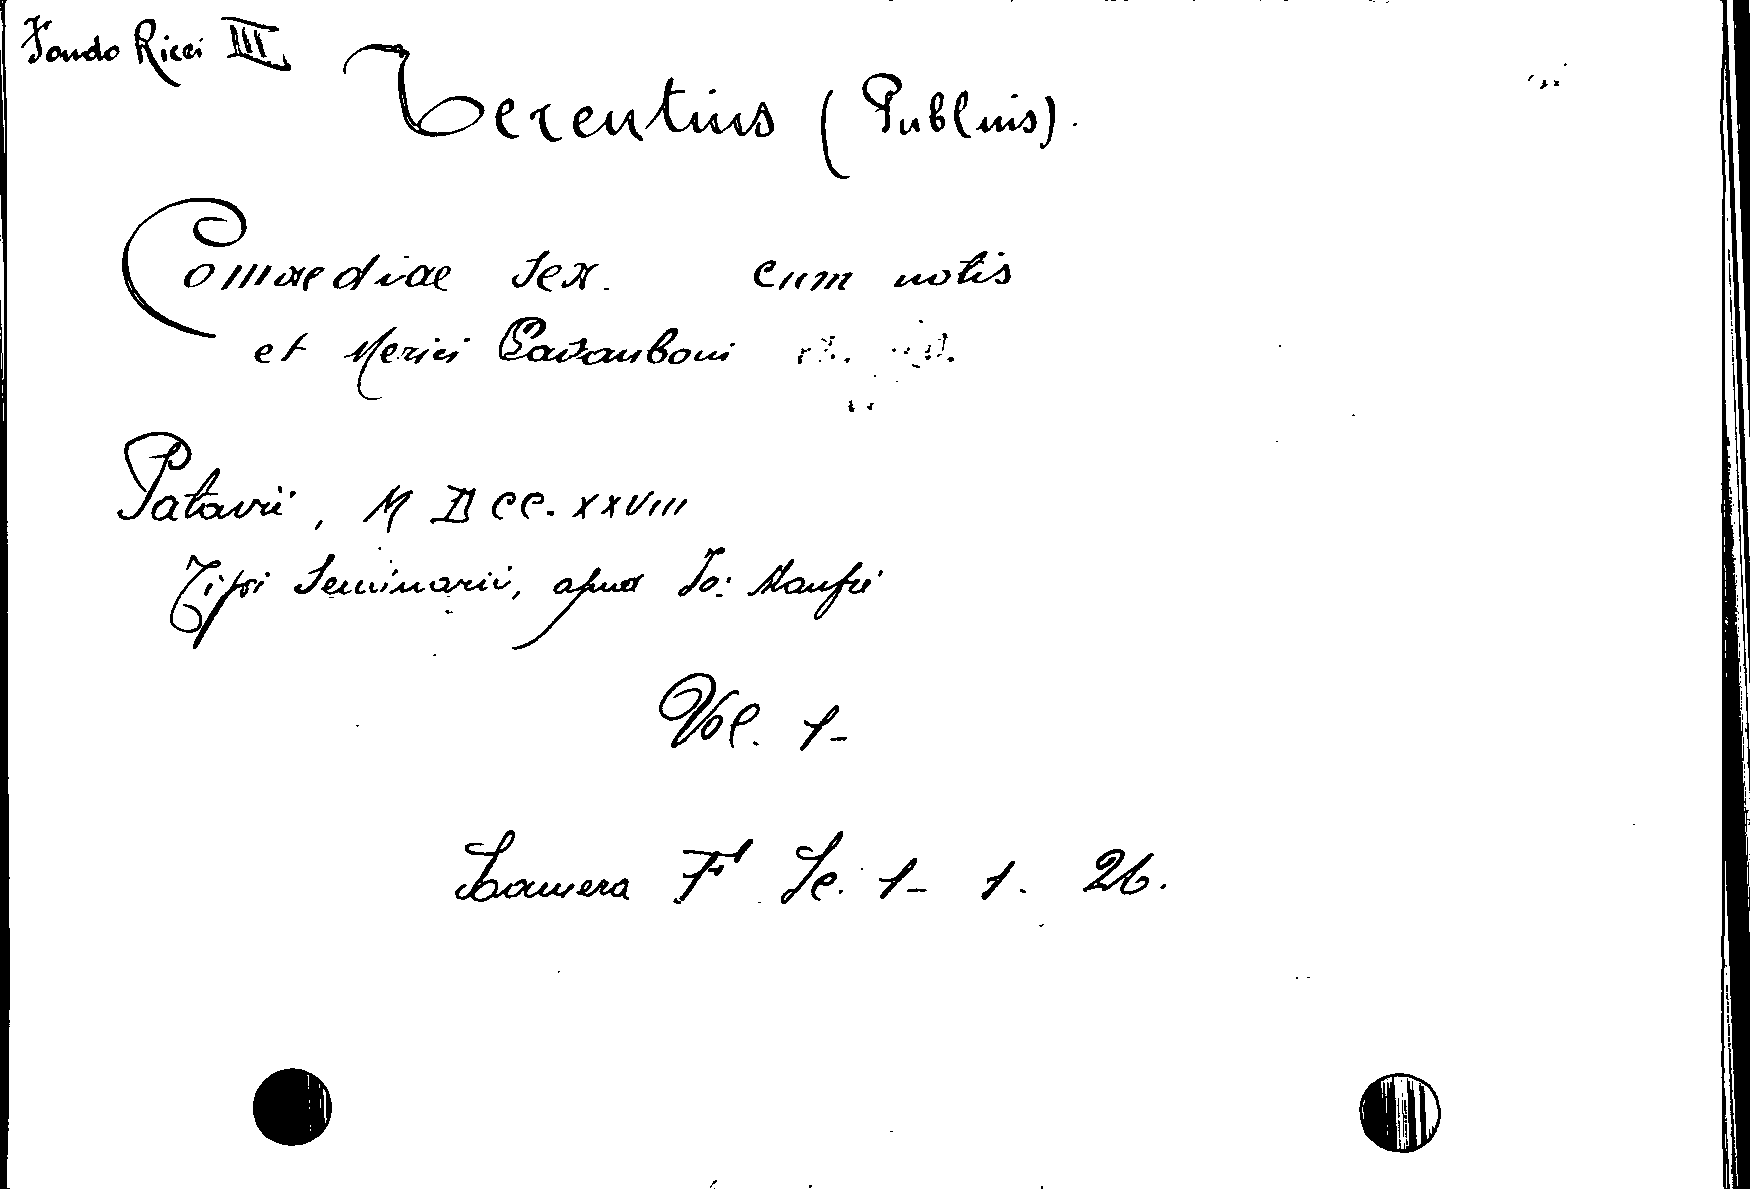 Fondo Ricci III
Terentius (Publius).
Comaediae sex. cum notis
et Merici Casauboni
Patavii, M D CC. XXVIII
Tipi Seminarii, apud Jo: Manfrè
Vol. 1-
Camera F Sc. 1- 1. 26.